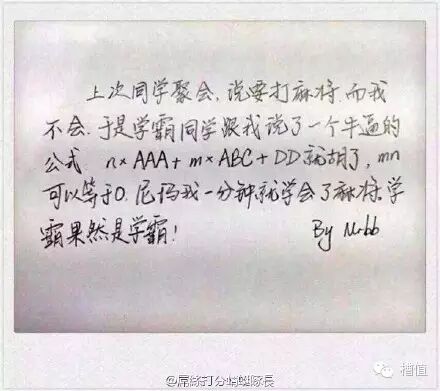 上次同学聚会，说要打麻将，而我
不会，于是学霸同学跟我说了一个牛逼的
公式 n×AAA+m×ABC+DD就胡了，mn
可以等于0。尼玛我一分钟就学会了麻将，学
霸果然是学霸！ By Mrbb
@屌絲打分蜻蜓隊長
槽值